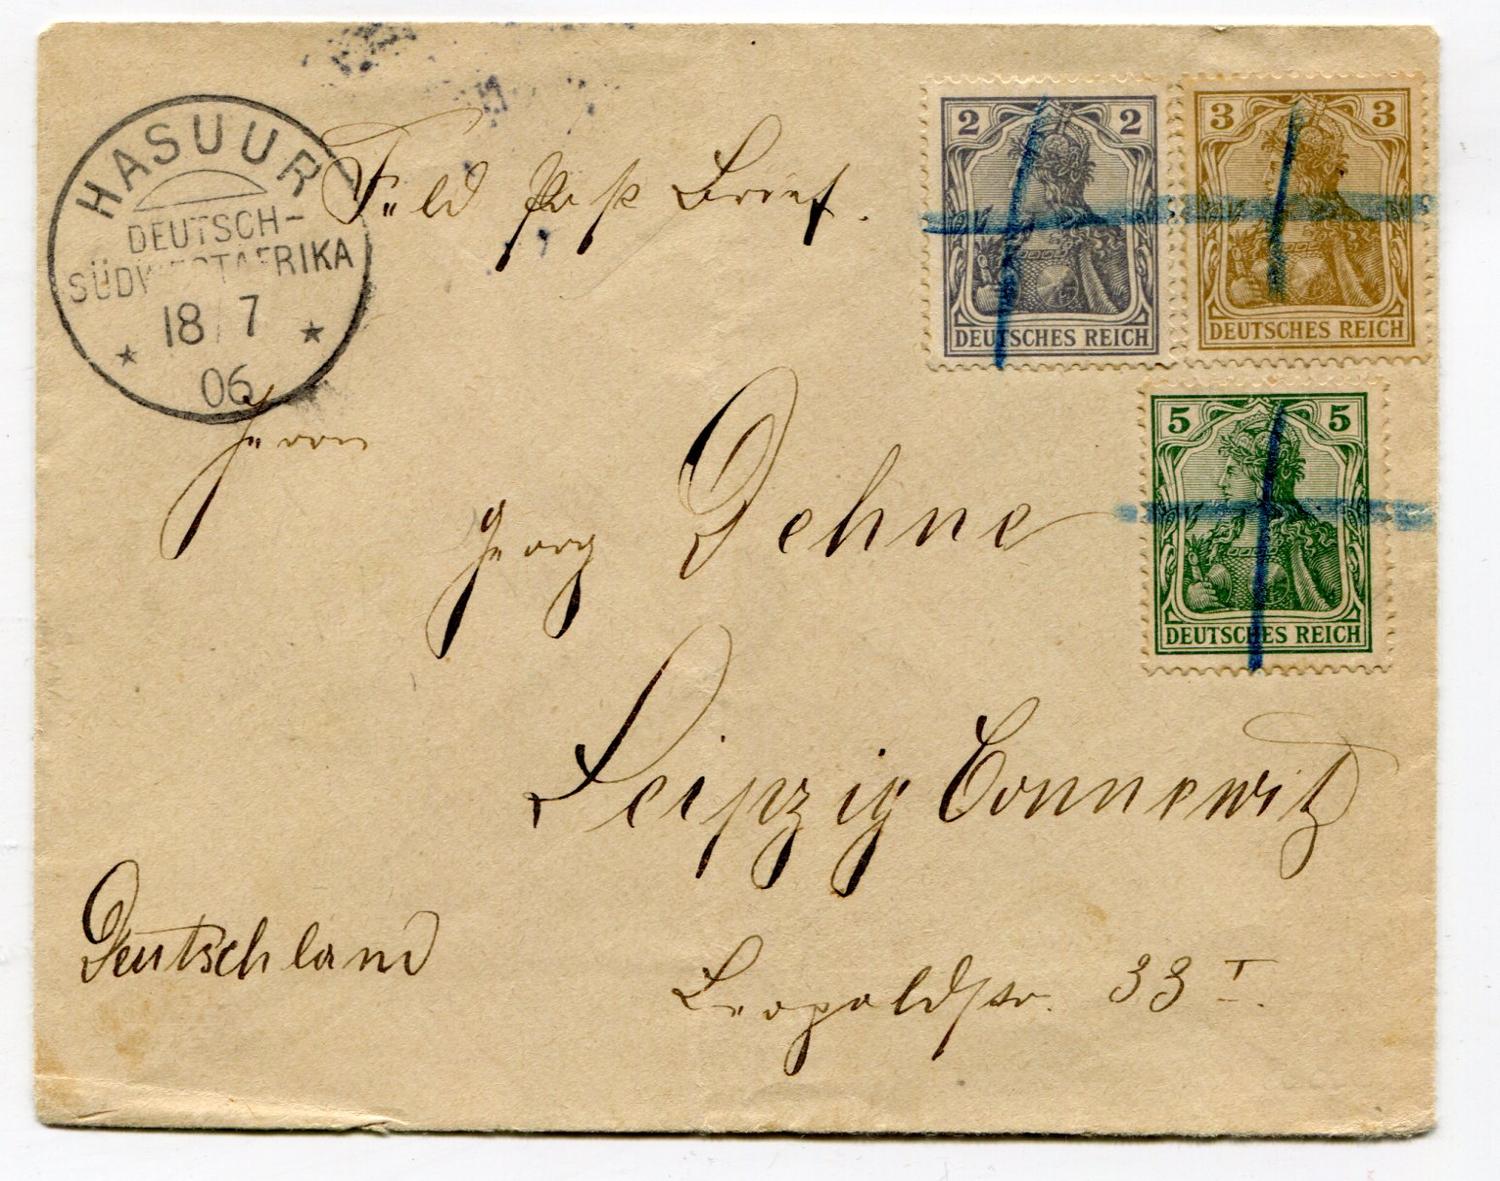 HASUUR
DEUTSCH-
SÜDWESTAFRIKA
18/7
06
Feld post Brief.
2 2
DEUTSCHES REICH
3 3
DEUTSCHES REICH
5 5
DEUTSCHES REICH
Herrn
Georg Dehne
Leipzig Connewitz
Leopoldstr. 33 I.
Deutschland